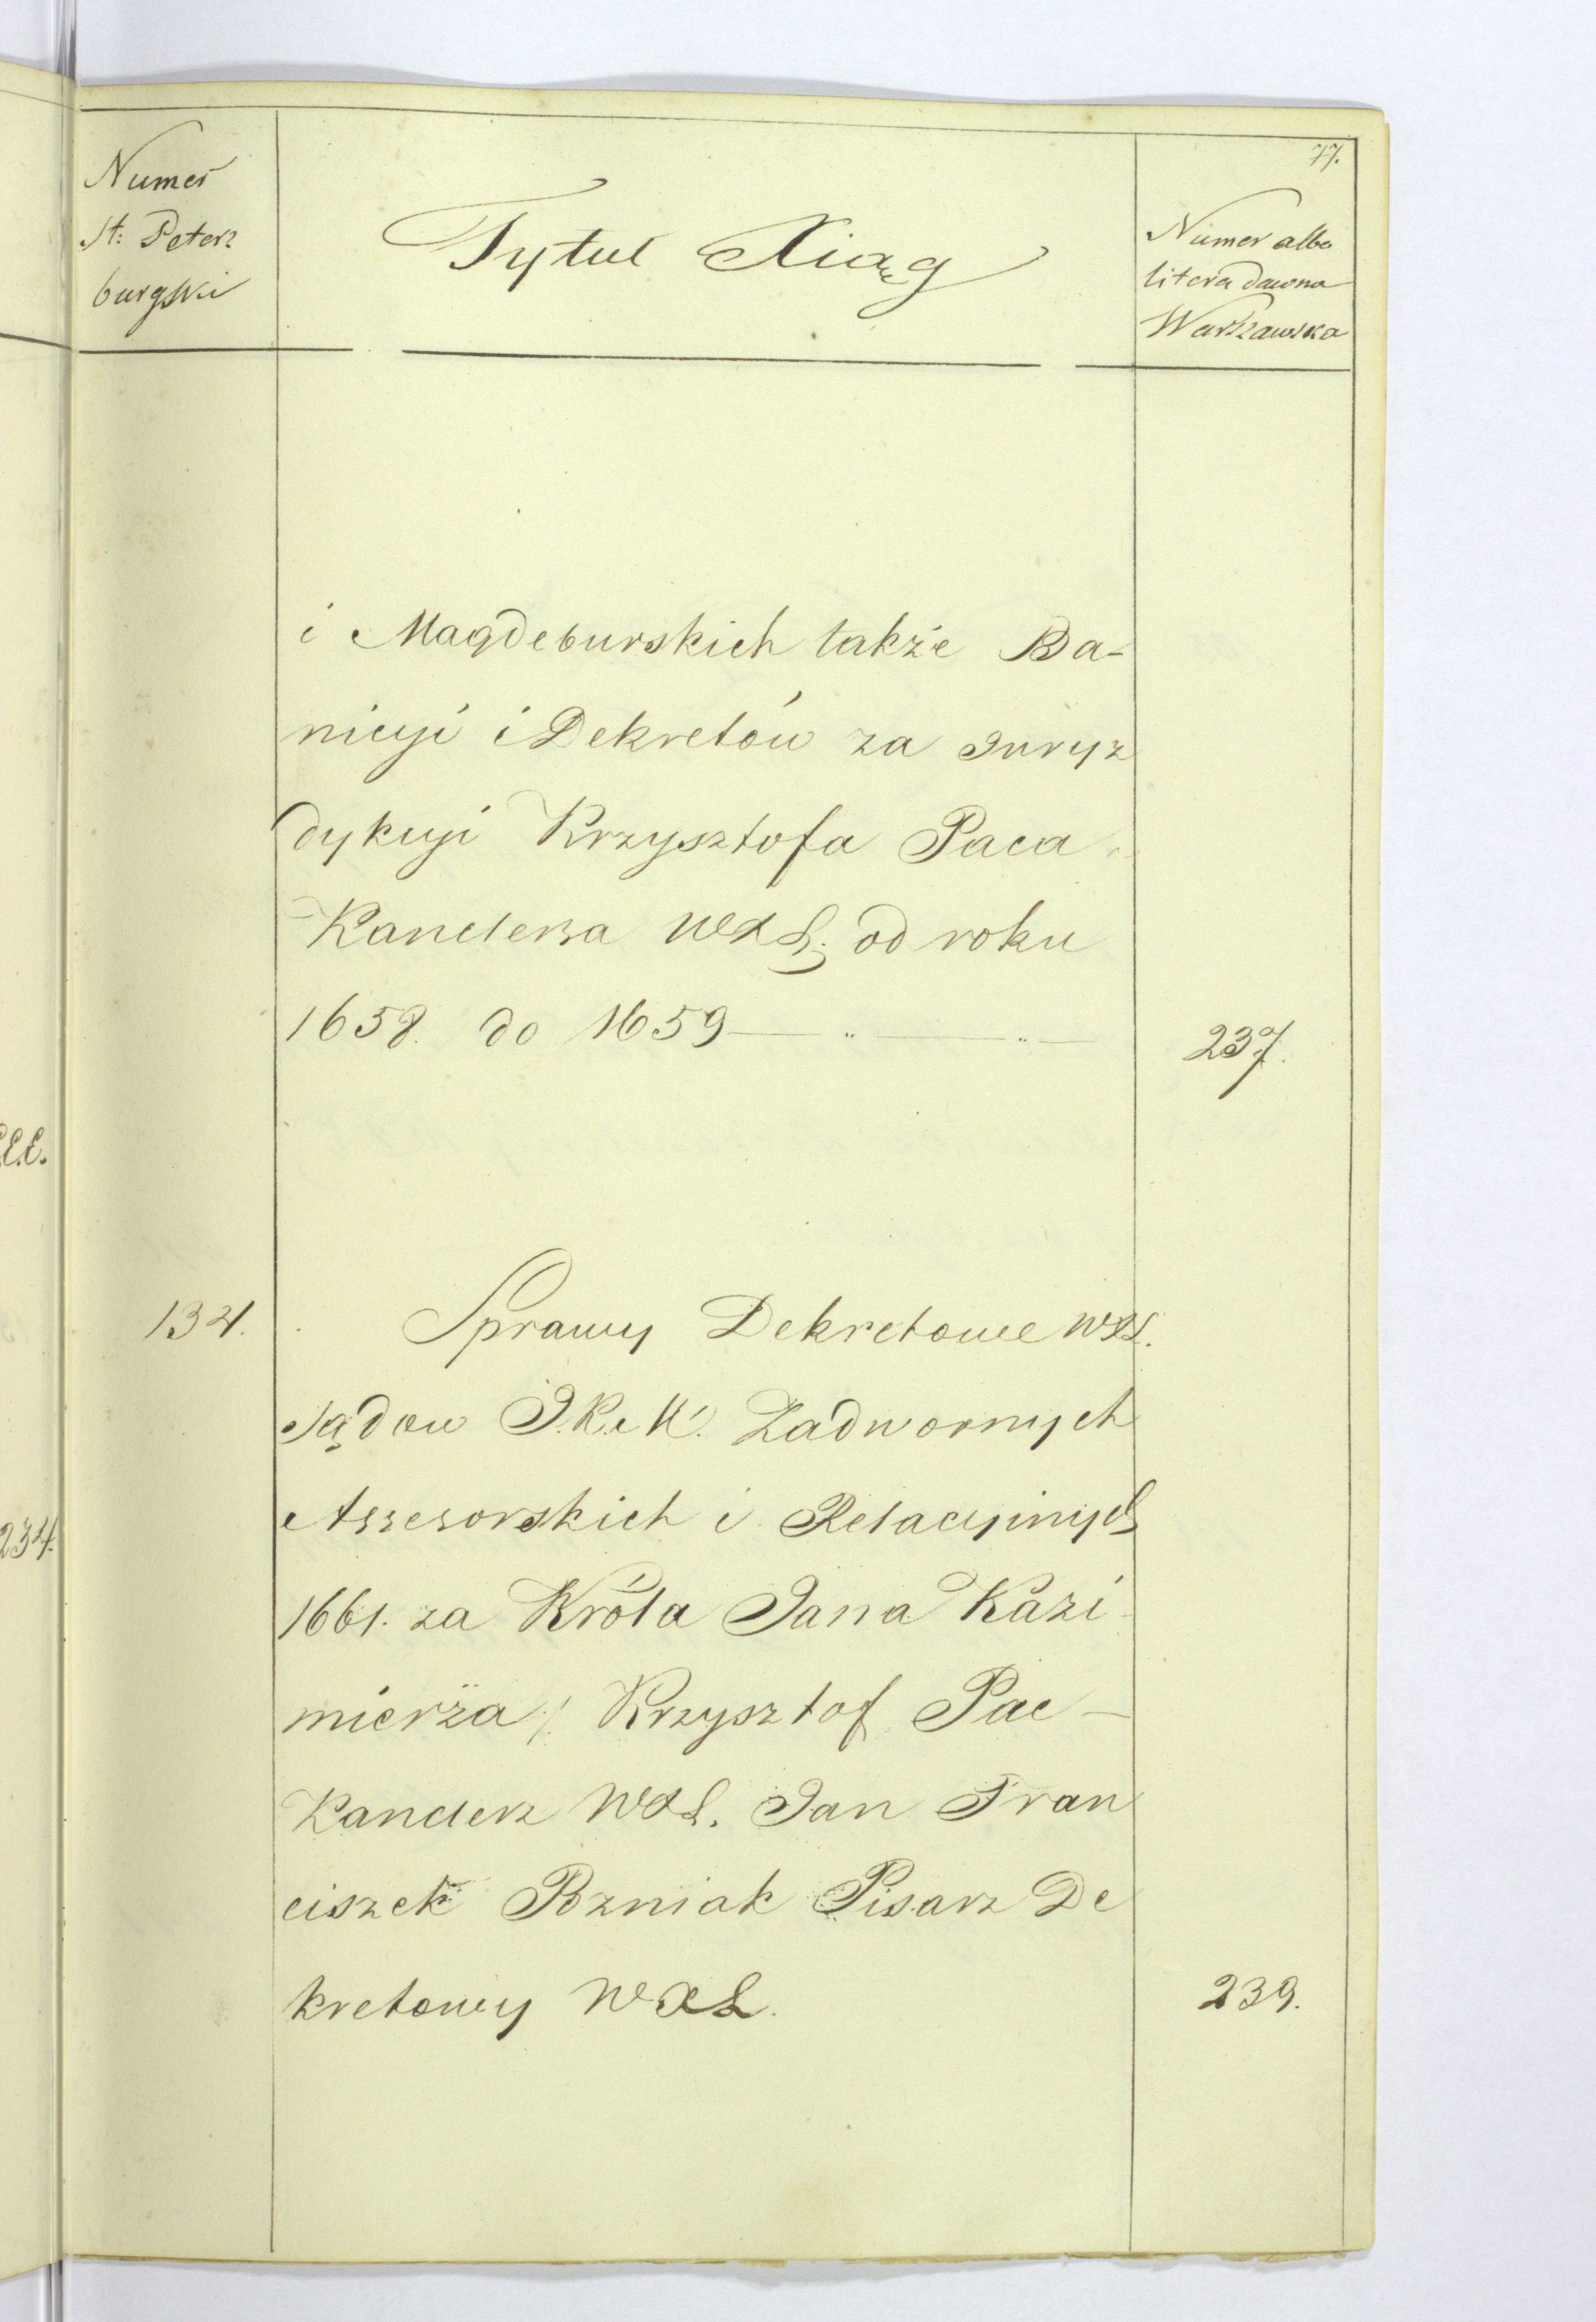 77.
Numer
St: Peterz
burgski
Tytuł Xiąg
Numer albo
litera dawna
Warszawska
i Magdeburskich także Ba-
nicyi i Dekretów za Juryz
dykcyi Krzysztofa Paca
Kanclerza WXL; od roku
1658. do 1659
237.
134.
Sprawy Dekretowe WXL.
Sądow J.K.M. Zadwornych
Assesorskich i Relacyinych
1661. za Króla Jana Kazi-
mierża /: Krzysztof Pac -
Kanclerz WXL. Jan Fran
ciszek Pozniak Pisarz De
kretowy WXL.
239.
234.